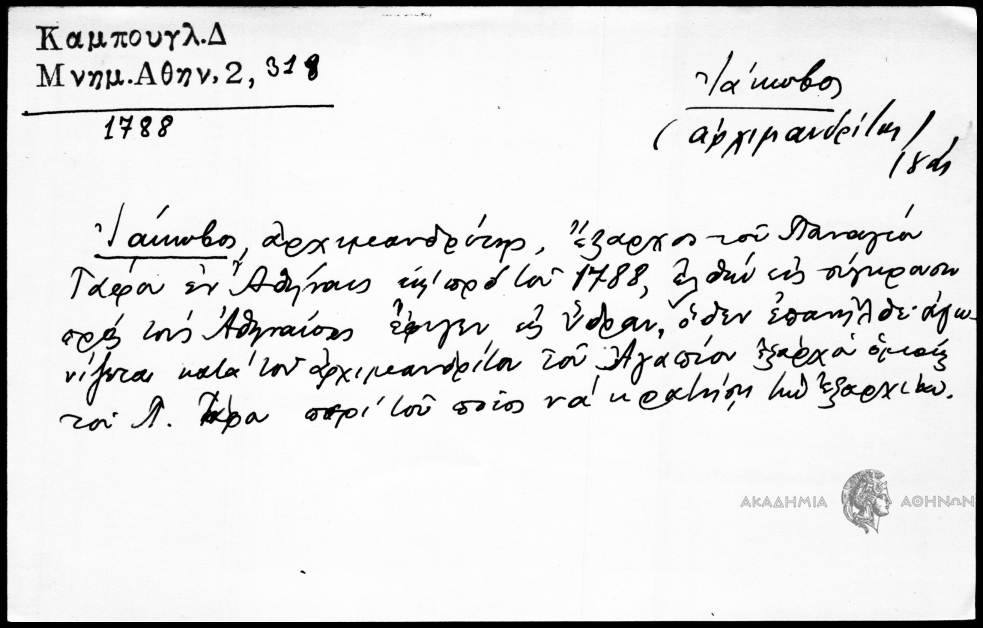 Καμπουγλ.Δ
Μνημ.Αθην.2, 318
1788
Ἰάκωβος
(ἀρχιμανδρίτης)
18ος
Ἰάκωβος, ἀρχιμανδρίτης, Ἔξαρχος τοῦ Παναγίου
Τάφου ἐν Ἀθήναις πρό τοῦ 1788, ἐλθών εἰς σύγκρουσιν
πρός τούς Ἀθηναίους ἔφυγεν εἰς Ὕδραν, ὅθεν ἐπανῆλθε· ἀγω-
νίζεται κατά τοῦ ἀρχιμανδρίτου τοῦ Ἀγαπίου ἐξάρχου ὁμοίως
τοῦ Π. Τάφου περί τοῦ ποῖος νά κρατήσῃ τήν ἐξαρχίαν.
ΑΚΑΔΗΜΙΑ ΑΘΗΝΩΝ